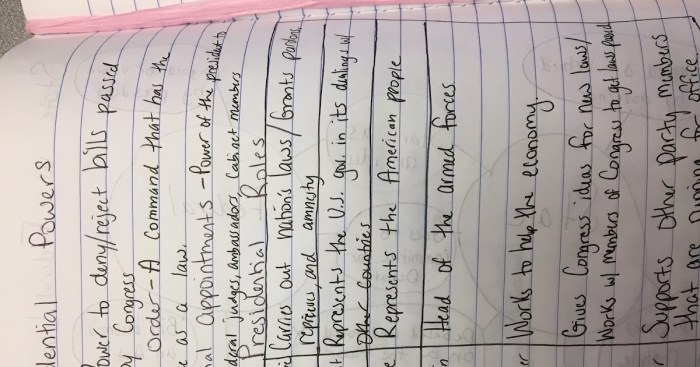 dential Powers
Power to deny/reject bills passed
by Congress
Order - A command that has the
as a law.
al appointments - Power of the president to
deral judges, ambassadors, Cabinet members
Presidential Roles
Carries out nation's laws/Grants pardons
reprieves, and amnesty
Represents the U.S. gov. in its dealings w/
Other Countries
Represents the American people
Head of the armed forces
er Works to help the economy
Gives Congress ideas for new laws/
Works w/ members of Congress to get laws passed
r Supports other party members
that are running for office